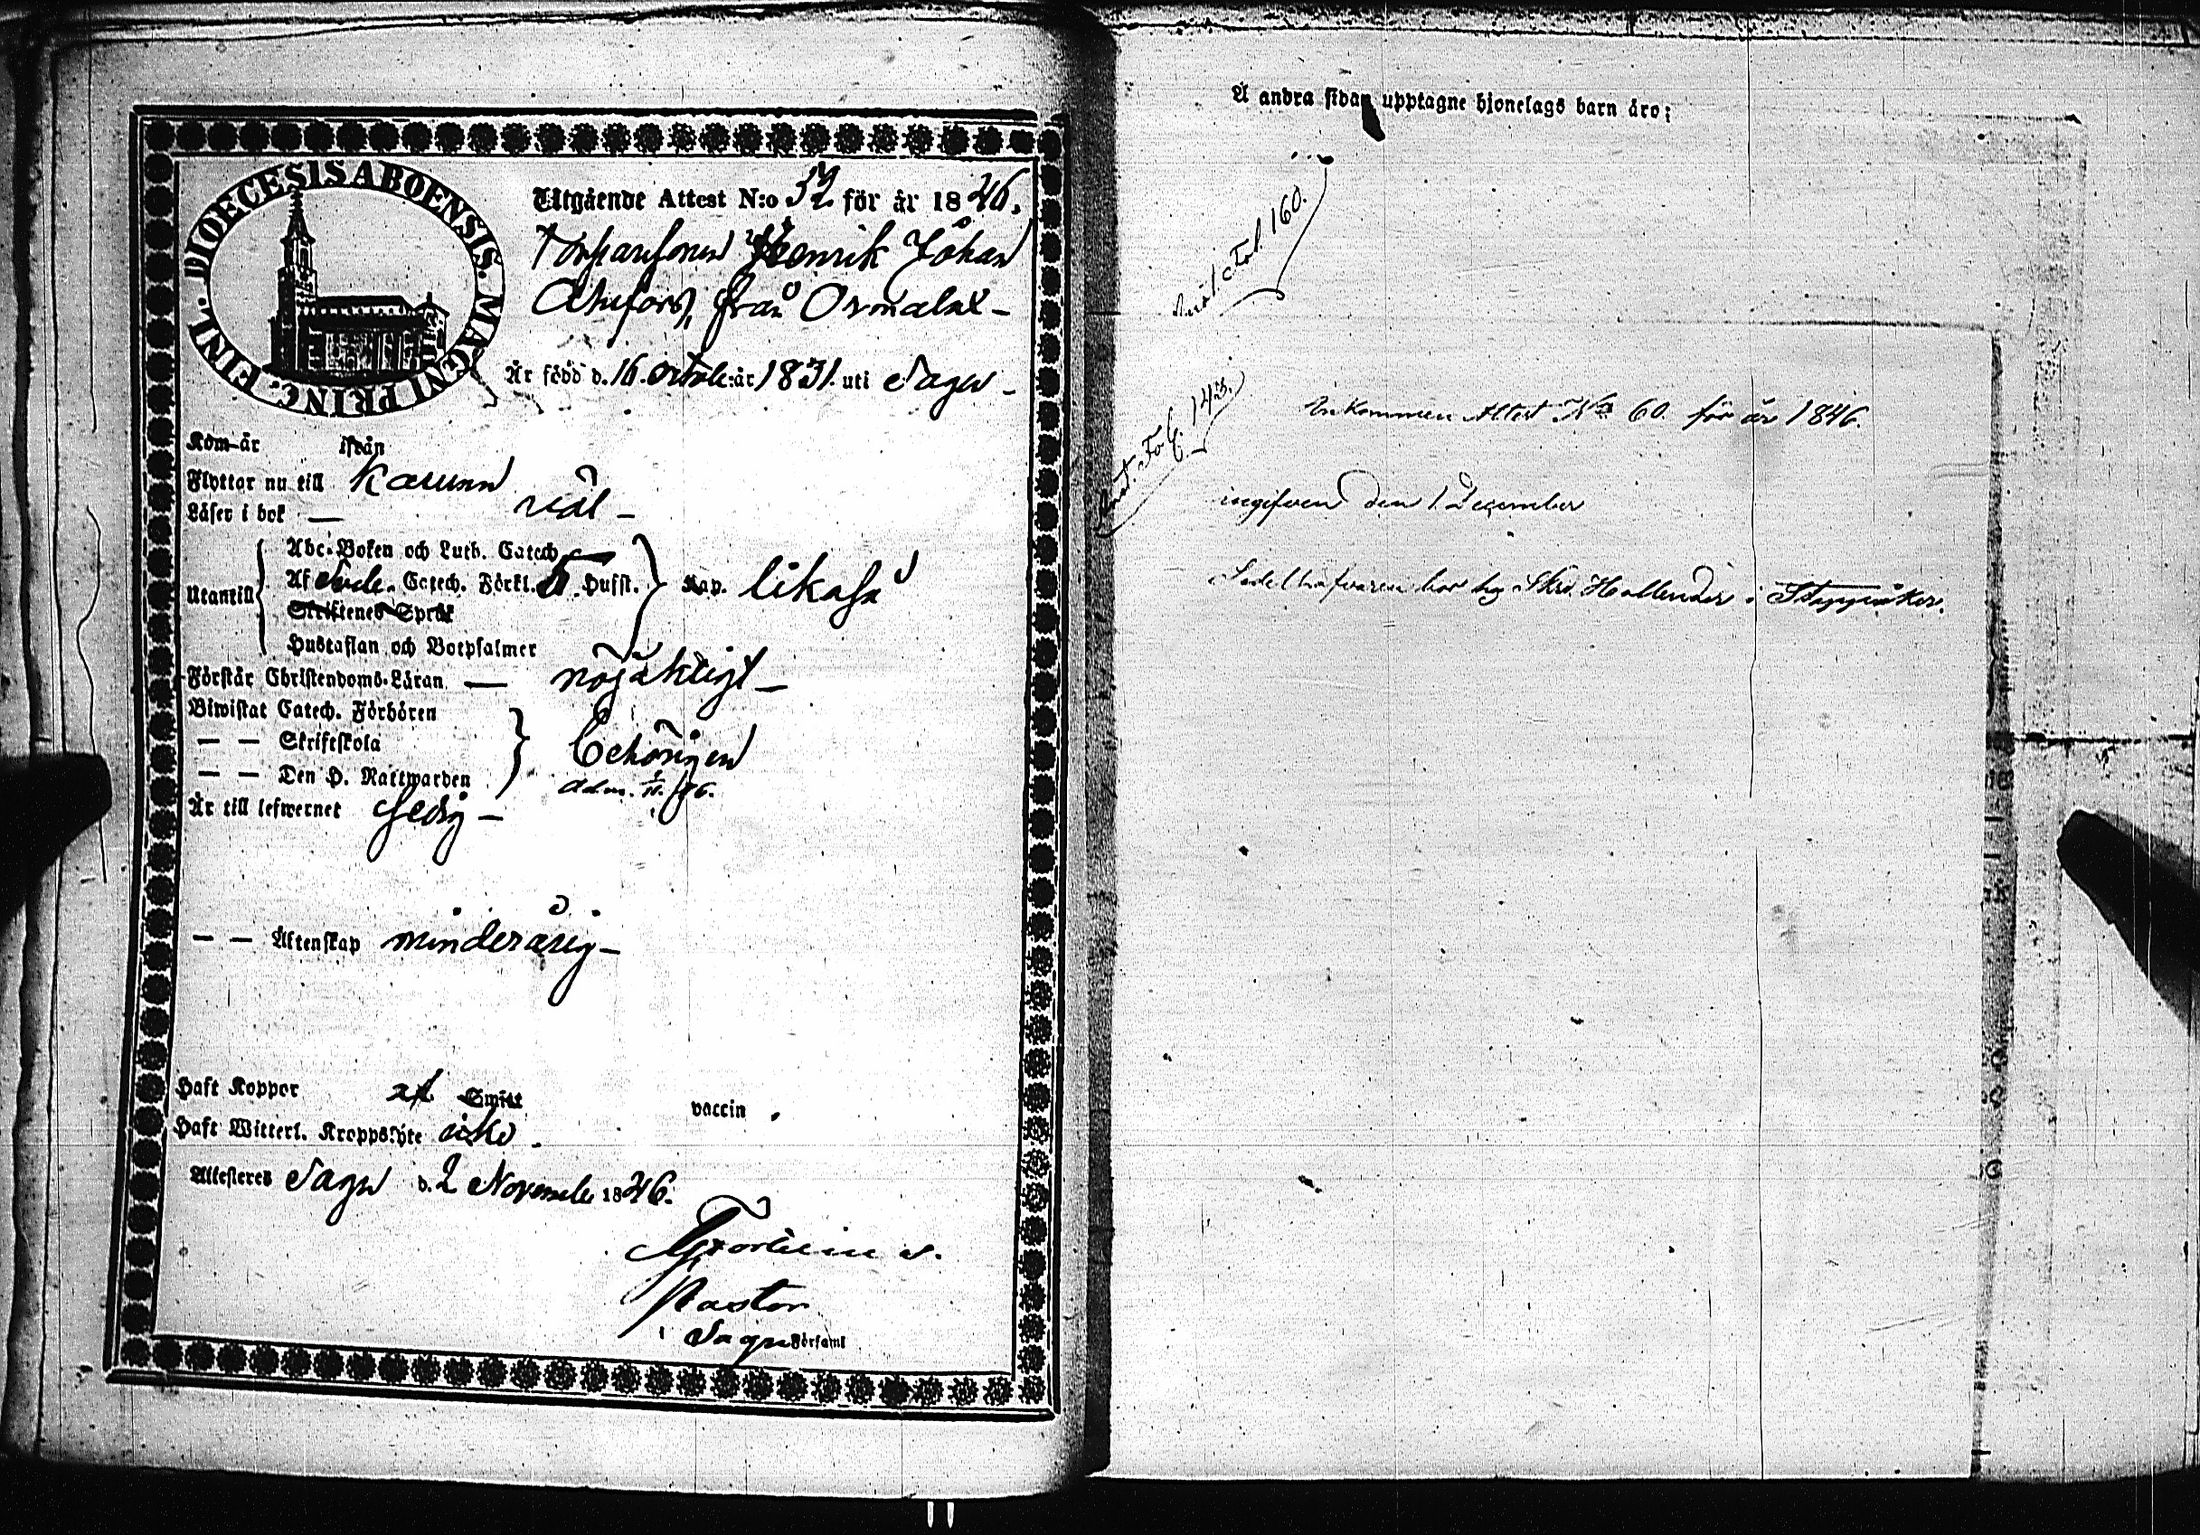 DIOECESIS ABOENSIS. MAGNI PRINC. FINL.
Utgående Attest N:o 32 för år 1846.
Torparesonen Henrik Johan
från
Är född d. 16 octob: år 1831. uti Sagu
Kom-år ifrån
Flyttar nu till Karuna
Läser i bok — väl
Utantill
Abc-Boken och Luth. Catech.
Af Sveb. Catech. Förkl. 5 Hufst. Kap. likaså
Skriftenes Språk
Hustaflan och Botpsalmer
Förstår Christendoms-Läran — nöjaktigt
Biwistat Catech. Förhören
— — Skriftskola behörigen
— — Den H. Nattwarden
Är till lefwernet
— — Äktenskap minderårig
Haft Koppor af Smitt vaccin.
Haft Witterl. Kroppslyte icke
Attesteres Sagu d. 2 November 1846.
Pastor
i Sagu Församl
Å andra sidan upptagne hjonelags barn äro:
Fol. 160.
Fol. 143.
Inkommen Attest No 60. för år 1846.
ingifven den 1 December
hos Hollender i